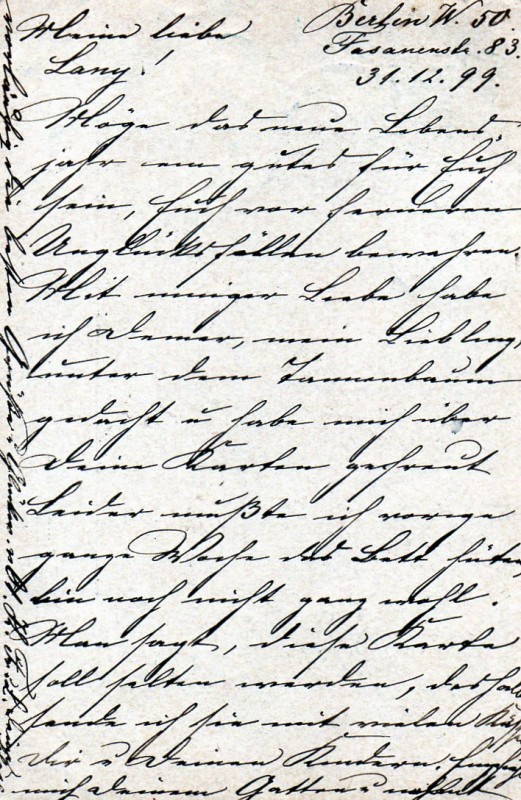 Berlin W. 50.
Fasanenstr. 83.
31.12.99.
Meine liebe
Lany!
Möge das neue Lebens-
jahr ein gutes für Euch
sein, Euch vor ferneren
Unglücksfällen bewahren.
Mit inniger Liebe habe
ich Deiner, mein Liebling,
unter dem Tannenbaum
gedacht u habe mich über
Deine Karten gefreut
Leider mußte ich vorige
ganze Woche das Bett hüten,
bin noch nicht ganz wohl.
Man sagt, diese Karte
soll selten werden, deshalb
sende ich sie mit vielen
Dir u Deinen Kindern.
mich Deinem Gatten u